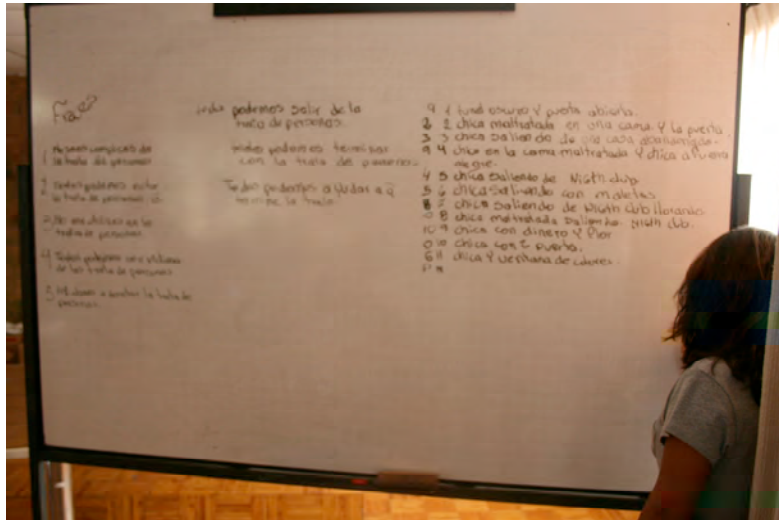 Frases
1 No sean complices de
la trata de personas
2 todos podemos evitar
la trata de personas
3 No me utilices en la
trata de personas
4 Todos podemos ser victimas
de la trata de personas
5 a la trata de
personas
todos podemos salir de la
trata de personas.
todos podemos terminar
con la trata de personas.
Todos podemos ayudar a q̄
termine la trata
9 1 tunel oscuro y puerta abierta.
2 2 chica maltratada en una cama. Y la puerta
3 3 chica saliendo de una casa
9 4 chica en la cama maltratada y chica afuera
alegre.
4 5 chica saliendo de Nigth club
5 6 chica saliendo con maletas
8 7 chica saliendo de Nigth club llorando.
8 chica maltratada saliendo. Nigth club.
10 9 chica con dinero y Flor
0 10 chica con 2 puerta.
6 11 chica y ventana de colores.